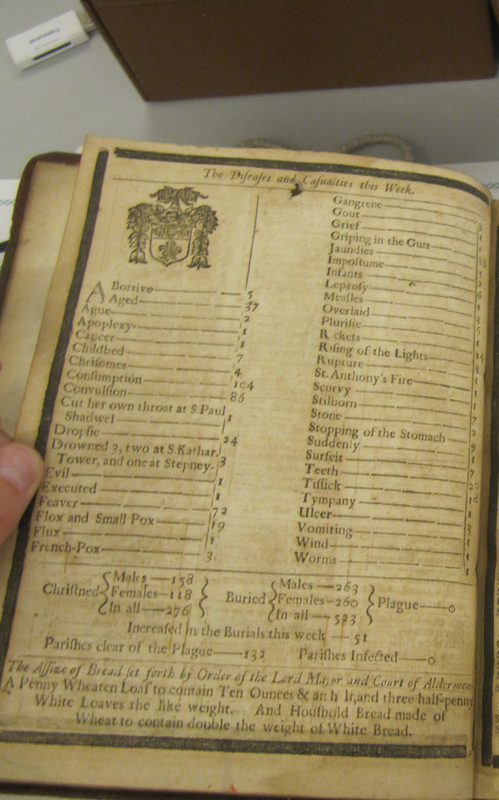 The Diseases and Casualties this Week.
ABortive 5
Aged 37
Ague 2
Apoplexy 1
Cancer 1
Childbed 7
Chrisomes 4
Consumption 104
Convulsion 86
Cut her own throat at S. Paul
Shadwel 1
Dropsie 24
Drowned 3, two at S. Kathar.
Tower, and one at Stepney. 3
Evil 1
Executed 1
Feaver 72
Flox and Small Pox 19
Flux 1
French-Pox 3
Gangrene
Gout
Grief
Griping in the Guts
Jaundies
Impostume
Infants
Leprosy
Measles
Overlaid
Plurisie
Rickets
Rising of the Lights
Rupture
St. Anthony's Fire
Scurvy
Stilborn
Stone
Stopping of the Stomach
Suddenly
Surfeit
Teeth
Tissick
Tympany
Ulcer
Vomiting
Wind
Worms
Chrisned Males 158 Females 118 In all 276
Buried Males 263 Females 260 In all 523 Plague 0
Increased in the Burials this week 51
Parishes clear of the Plague 132 Parishes Infected 0
The Assize of Bread set forth by Order of the Lord Major and Court of Aldermen
A Penny Wheaten Loaf to contain Ten Ounces & an h lf, and three half-penny
White Loaves the like weight. And Houshold Bread made of
Wheat to contain double the weight of White Bread.